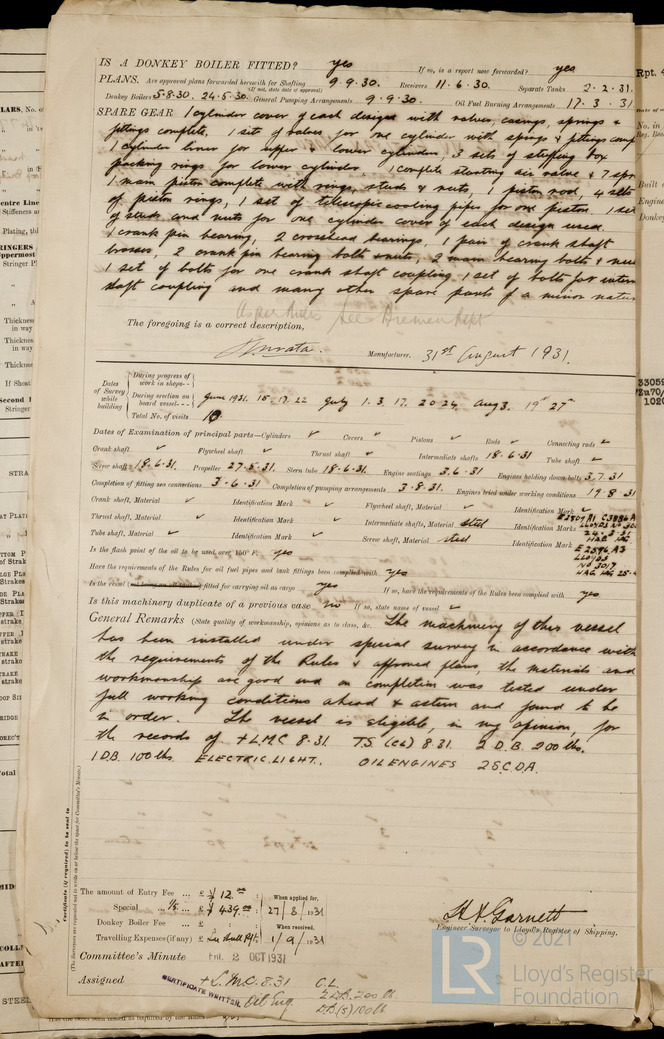 IS A DONKEY BOILER FITTED? yes If so, is a report now forwarded? yes
PLANS. Are approved plans forwarded herewith for Shafting 9.9.30. Receivers 11.6.30. Separate Tanks 2.2.31.
(If not, state date of approval)
Donkey Boilers 5.8.30. 24.5.30. General Pumping Arrangements 9.9.30. Oil Fuel Burning Arrangements 17.3.31
SPARE GEAR 1 cylinder cover of each design with valves, casings, springs &
fittings complete, 1 set of valves for one cylinder with springs & fittings comp
1 cylinder liner for upper & lower cylinders, 3 sets of stuffing box
packing rings for lower cylinder 1 complete starting air valve & 7 spr
1 main piston complete with rings, studs & nuts, 1 piston rod, 4 sets
of piston rings, 1 set of telescopic cooling pipes for one piston. 1 set
of studs and nuts for one cylinder cover of each design used.
1 crank pin bearing, 2 crosshead bearings, 1 pair of crank shaft
brasses, 2 crank pin bearing bolts & nuts, 2 main bearing bolts & nuts
1 set of bolts for one crank shaft coupling 1 set of bolts for interm
shaft coupling and many other spare parts of a minor natur
As per Rules See Bremen Rept
The foregoing is a correct description,
Manufacturer. 31st August 1931.
Dates of Survey while building
During progress of work in shops
During erection on board vessel June 1931. 15. 17. 22 July 1. 3. 17. 20. 24. Aug 3. 19 27
Total No. of visits 10
Dates of Examination of principal parts—Cylinders ✓ Covers ✓ Pistons ✓ Rods ✓ Connecting rods ✓
Crank shaft ✓ Flywheel shaft ✓ Thrust shaft ✓ Intermediate shafts 18.6.31 Tube shaft ✓
Screw shaft 18.6.31. Propeller 27.5.31. Stern tube 18.6.31. Engine seatings 3.6.31 Engines holding down bolts 3.7.31
Completion of fitting sea connections 3.6.31 Completion of pumping arrangements 3.8.31. Engines tried under working conditions 19.8.31
Crank shaft, Material ✓ Identification Mark ✓ Flywheel shaft, Material ✓ Identification Mark ✓
Thrust shaft, Material ✓ Identification Mark ✓ Intermediate shafts, Material steel Identification Marks LLOYDS
Tube shaft, Material ✓ Identification Mark ✓ Screw shaft, Material steel Identification Mark LLOYDS No 3017
Is the flash point of the oil to be used over 150° F. yes
Have the requirements of the Rules for oil fuel pipes and tank fittings been complied with yes
Is the vessel fitted for carrying oil as cargo yes If so, have the requirements of the Rules been complied with yes
Is this machinery duplicate of a previous case no If so, state name of vessel ✓
General Remarks (State quality of workmanship, opinions as to class, &c. The machinery of this vessel
has been installed under special survey in accordance with
the requirements of the Rules & approved plans, the materials and
workmanship are good and on completion was tested under
full working conditions ahead & astern and found to be
in order. The vessel is eligible, in my opinion, for
the records of +LMC 8.31 TS (CL) 8.31. 2 D.B. 200 lbs.
1 D.B. 100 lbs. ELECTRIC LIGHT. OIL ENGINES 2 S.C.D.A.
The amount of Entry Fee ... £ 12 : When applied for,
Special ... 1/5 £ 439 : 27/8/1931
Donkey Boiler Fee ... £ : When received,
Travelling Expenses (if any) £ 1/9/1931
H A Garnett
Engineer Surveyor to Lloyd's Register of Shipping.
Committee's Minute FRI. 2 OCT 1931
Assigned +L.M.C. 8.31 C.L.
CERTIFICATE WRITTEN. Oil Eng. 2 D.B. 200 lb
D.B.(s) 100 lb
© 2021
LR
Lloyd's Register
Foundation